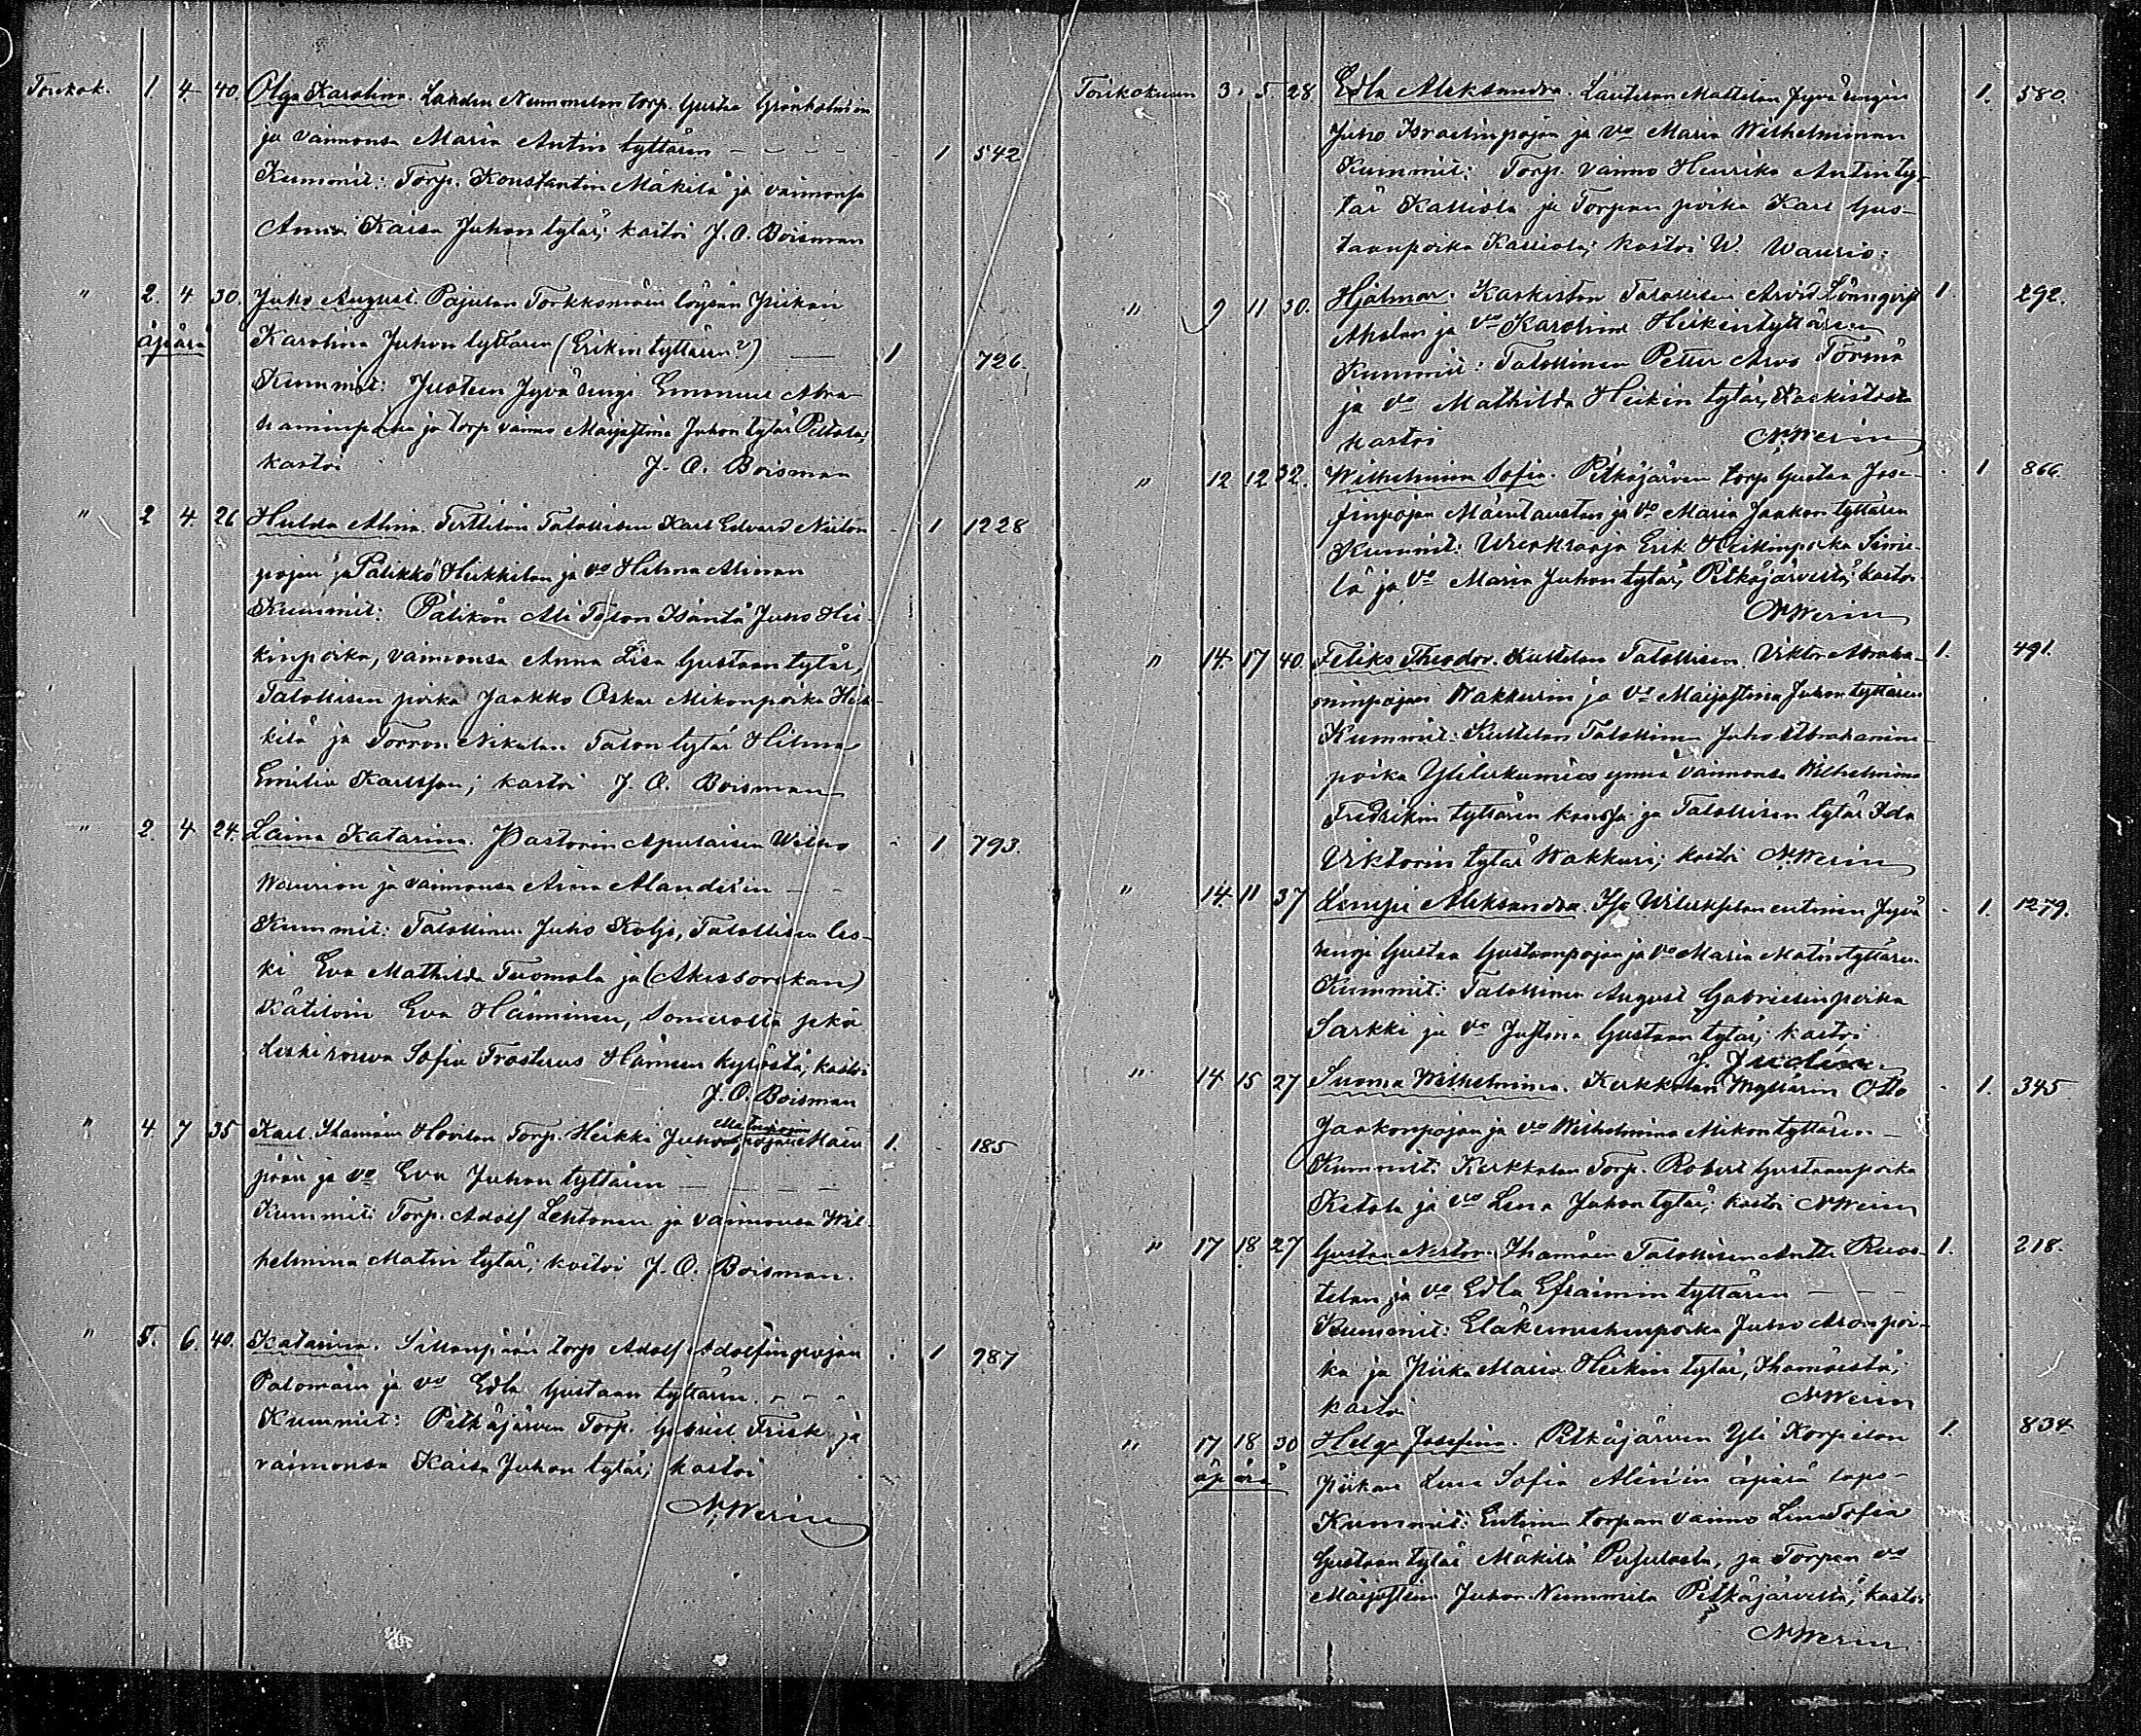 Toukok. 1. 4. 40. Olga Karolina. Lahden Nummelan torp. Gustaa Grönholmin
ja vaimonsa Maria Antin tyttären 1 542
Kummit: Torp. Konstantin Mäkilä ja vaimonsa
Anna Kaisa Juhon tytär; kastoi J. O. Boisman
" 2. 4 30. Juho August. Pajulan Torkkomäen löysän Piikan
äpärä Karolina Juhon tyttären (Erikin tyttären?) 1 726.
Kummit: Jyvä rengi Emanuel Abra-
haminpoika ja torp. vaimo Maijastina Juhon tytär Peltola;
kastoi J. O. Boisman
" 2 4 26 Hulda Alina. Terttilän Talollisen Karl Edvard Niilon 1 1228
pojan ja Pälikkö Heikkilän ja vo Hilma Alinan
Kummit: Pälikön Ali Talon Isäntä Juho Hei-
kinpoika, vaimonsa Anna Lisa Gustaan tytär,
Talollisen poika Jaakko Oskar Mikonpoika Heik-
kilä ja Torron Nikulan Talon tytär Hilma
Emilia Karlsson; kastoi J. O. Boisman
" 2 4 24. Laina Katarina. Pastorin Apulaisen Wilho 1 793.
Waurion ja vaimonsa Aina Alanderin
Kummit: Talollinen Juho Kolji, Talollisen les-
ki Eva Mathilda Tuomola ja (Akissorskan)
Kätilöin Eva Hänninen, Somerolta sekä
Leskirouva Sofia Frosterus Hämeen kyröstä; kastoi
J. O. Boisman
" 4. 7 35 Karl. Ihamäen Hovilan Torp. Heikki Juhonpojan Mäen 1. 185
Matinpojan
pään ja vo Eva Juhon tyttären
Kummit: Torp. Adolf Lehtonen ja vaimonsa Wil-
helmina Matin tytär; kastoi J. O. Boisman.
" 5. 6. 40. Katarina. Sillanpään torp Adolf Adolfinpojan 1 987
Palomäen ja vo Edla Gustaan tyttären
Kummit: Pitkäjärven Torp. Gabriel Frisk ja
vaimonsa Kaisa Juhon tytär; kastoi
N. Werin
Toukokuun 3. 5. 28 Edla Aleksandra. Lautelan Mattilan Jyvä rengin 1. 580.
Juho Israelinpojan ja vo Maria Wilhelminan
Kummit: Torp. vaimo Henrika Antinty-
tär Kalliola ja Torpan poika Karl Gus-
taanpoika Kalliola; kastoi W. Waurio.
" 9 11 30. Hjalmar. Kaskiston Talollisen Arvid Lönnqvist 1. 292.
Aholan ja vo Karolina Heikintyttären
Kummit: Talollinen Petter Arvo Törmä
ja vo Mathilda Heikin tytär, Kaskistosta
kastoi N. Werin
" 12 12 32. Wilhelmina Sofia. Pitkäjärven torp Gustaa Jose- 1 866.
finpojan Mäentaustan ja vo Maria Jaakon tyttären
Kummit: Erik Heikinpoika Simo-
la ja vo Maria Juhon tytär, Pitkäjärveltä; kastoi
N. Werin
" 14. 17 40. Feliks Theodor. Kultelan Talollisen Viktor Abraha- 1. 491.
minpojan Wakkurin ja vo Maijastina Juhon tyttären
Kummit: Kultelan Talollinen Juho Abrahamin-
poika ynnä vaimonsa Wilhelmina
Fredrikin tyttären kanssa ja Talollisen tytär Ida
Viktorin tytär Wakkuri; kastoi N. Werin
" 14. 11 37 Lempi Aleksandra. Iso entinen Jyvä 1. 1279.
rengi Gustaa Gustaanpojan ja vo Maria Matintyttären
Kummit: Talollinen August Gabrielinpoika
Sarkki ja vo Justina Gustaan tytär; kastoi
" 14 15 27 Suoma Wilhelmina. Kerkkolan Mylläri Otto 1. 345
Jaakonpojan ja vo Wilhelmina Mikon tyttären
Kummit: Kerkkolan Torp. Robert Gustaanpoika
Ketola ja vo Lena Juhon tytär; kastoi N. Werin
" 17 18 27 Gustaa Nestor. Ihamäen Talollisen Antti Ruos- 1. 218.
telan ja vo Edla Efraimin tyttären
Kummit: Eläkemiehenpoika Juho Aronpoi-
ka ja Piika Maria Heikin tytär, Ihamäestä;
kastoi N. Werin
" 17 18 30 Helga Josefina. Pitkäjärven Yli Korpelan 1. 834.
äpärä piikan Lena Sofia Alenin äpärä laps-
Kummit: Entinen torpan vaimo Lena Sofia
Gustaan tytär Mäkilä ja Torpan vo
Maijastina Juhon Nummela Pitkäjärveltä; kastoi
N. Werin